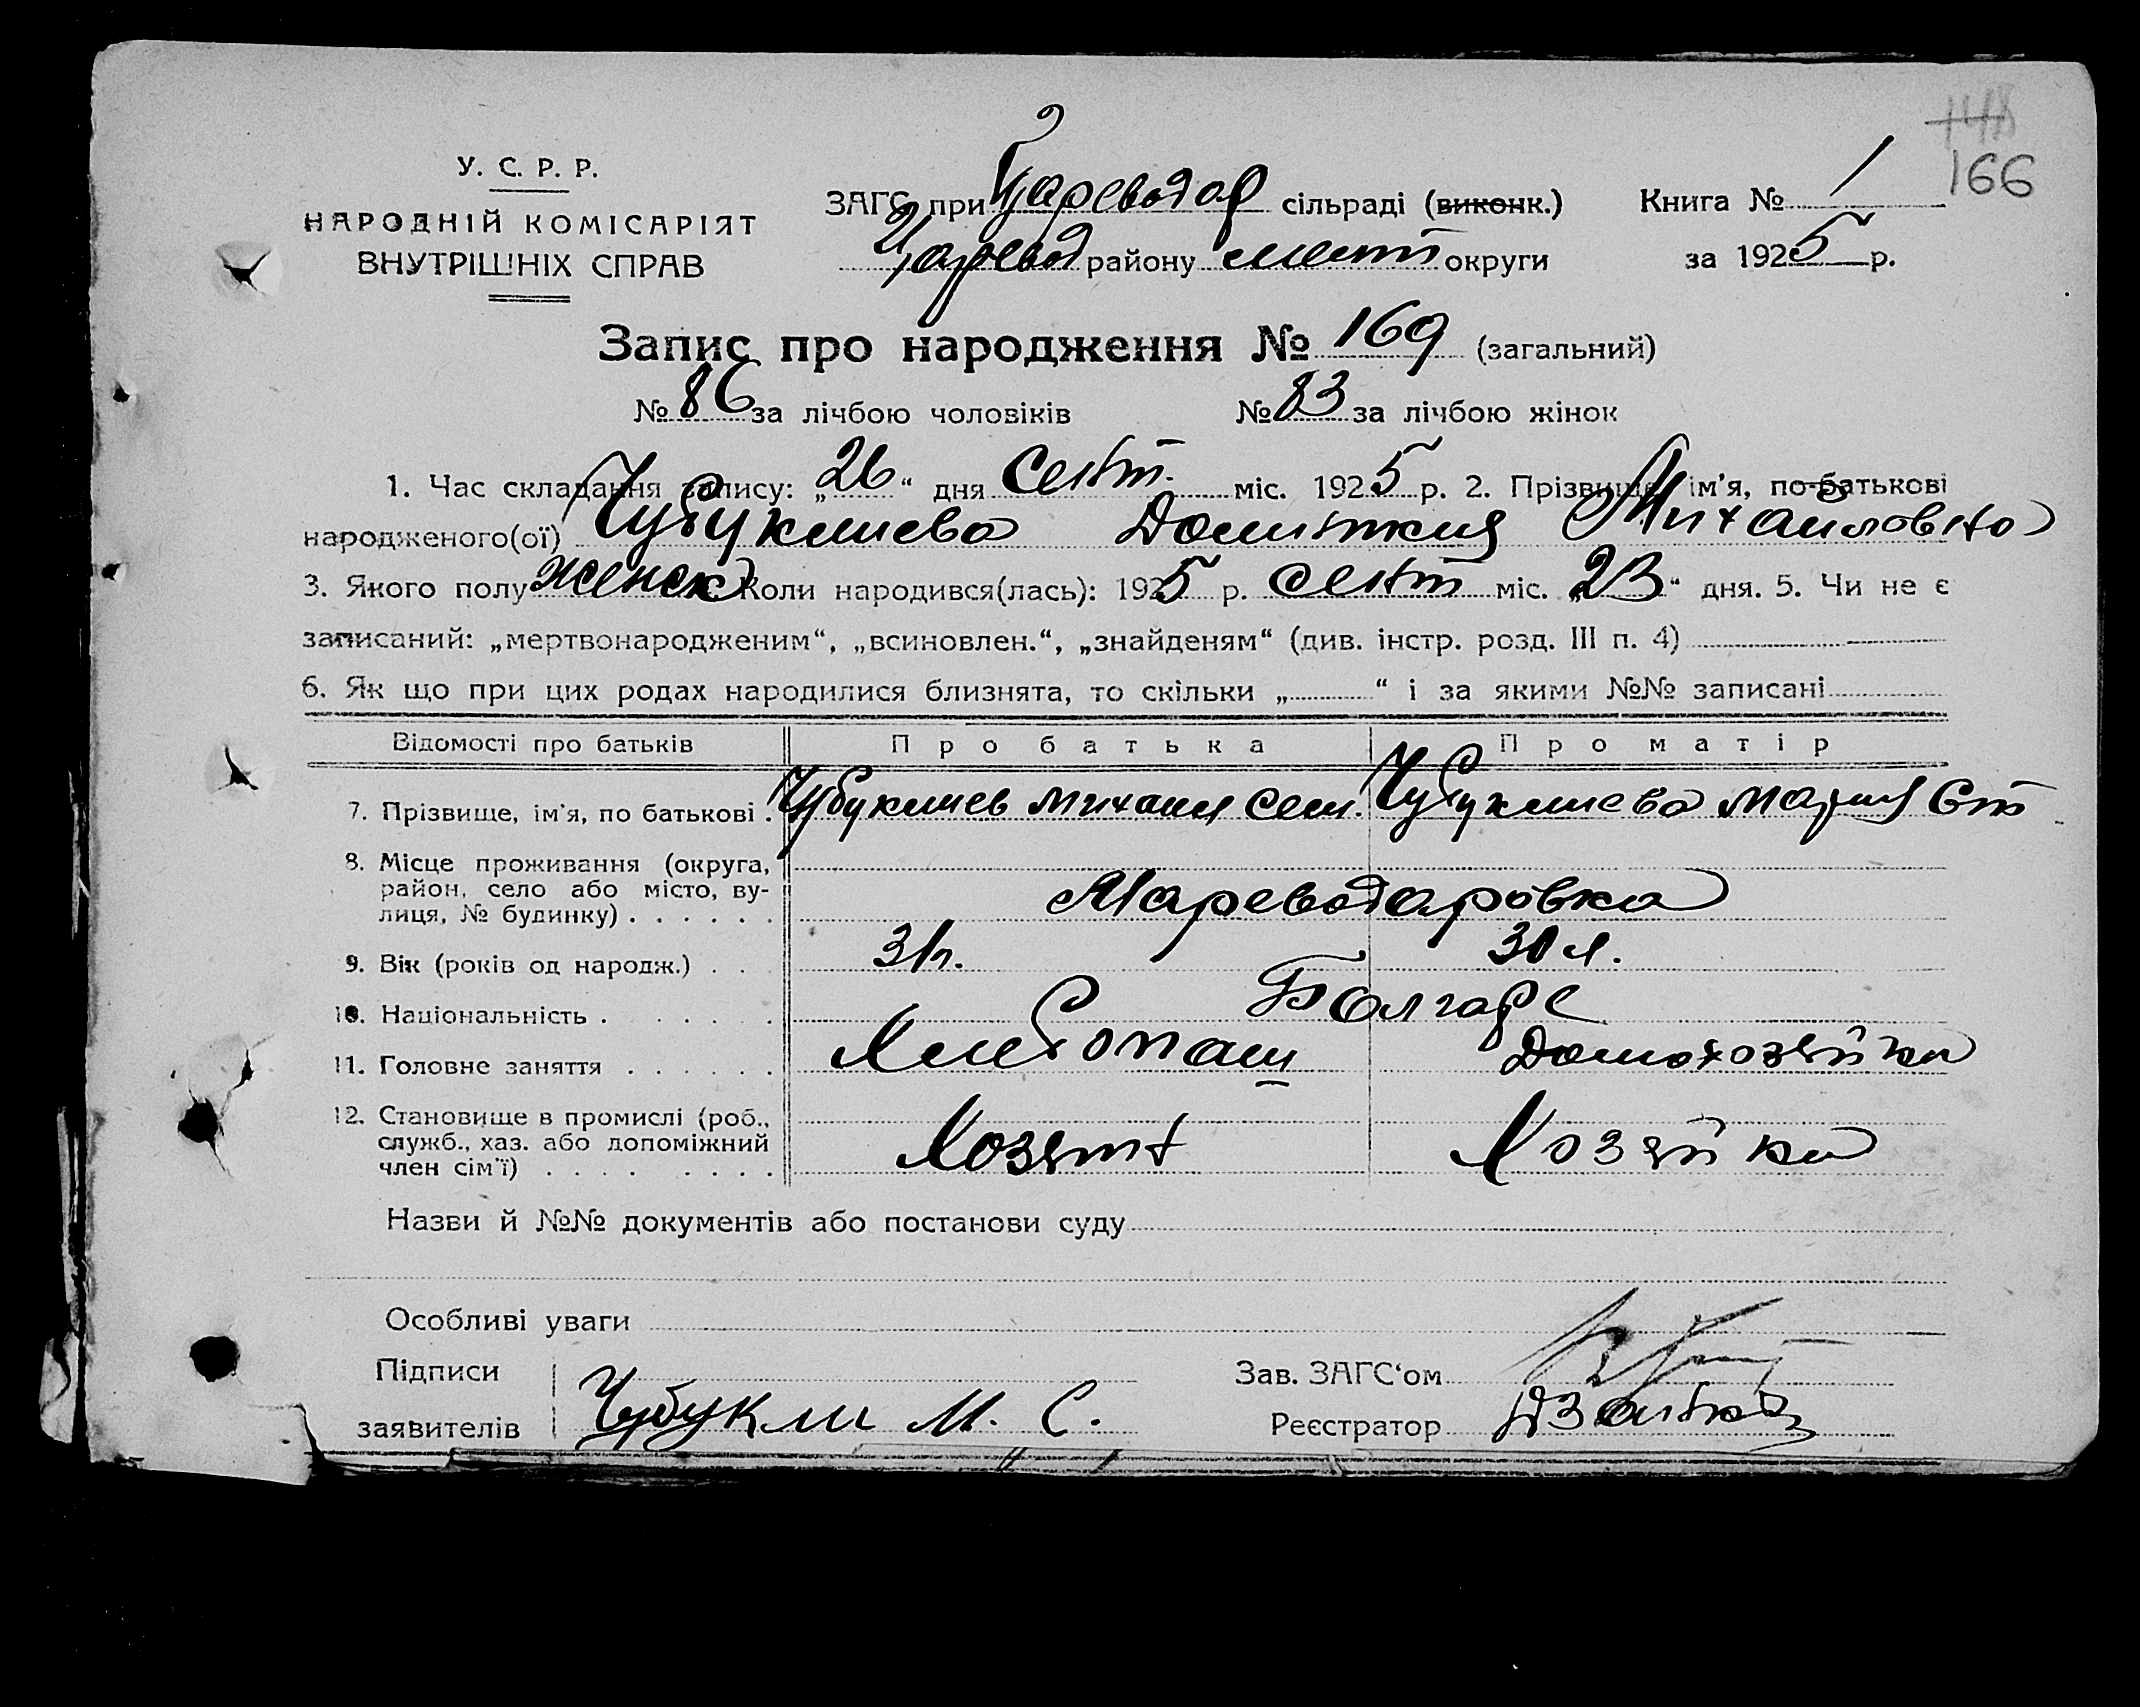 148
166
У. С. Р. Р.
НАРОДНІЙ КОМІСАРІЯТ
ВНУТРІШНІХ СПРАВ
ЗАГС при Цареводар сільраді (виконк.) Книга № 1
Царевод району мелит округи за 1925 р.
Запис про народження № 169 (загальний)
№ 86 за лічбою чоловіків № 83 за лічбою жінок
1. Час складання запису: „26“ дня сент. міс. 1925 р. 2. Прізвище, ім'я, по-батькові
народженого(ої) Чубуклиева Домникия Михайловна
3. Якого полу женск Коли народився(лась): 1925 р. сент міс. „23“ дня. 5. Чи не є
записаний: „мертвонародженим“, „всиновлен.“, „знайденям“ (див. інстр. розд. III п. 4)
6. Як що при цих родах народилися близнята, то скільки „ “ і за якими №№ записані
Відомості про батьків Про батька Про матір
7. Прізвище, ім'я, по батькові . Чубуклиев Михаил Сем. Чубуклиева Мария
8. Місце проживання (округа,
район, село або місто, ву-
лиця, № будинку) . . . . . . Цареводаровка
9. Вік (років од народж.) . . 31л. 30 л.
10. Національність . . . . . Болгаре
11. Головне заняття . . . . . . Хлебопаш Домохозяйка
12. Становище в промислі (роб.,
служб., хаз. або допоміжний
член сім'ї) . . . . . . . . Хозяин Хозяйка
Назви й №№ документів або постанови суду
Особливі уваги
Підписи Зав. ЗАГС‘ом
заявителів Чубукли М. С. Реєстратор